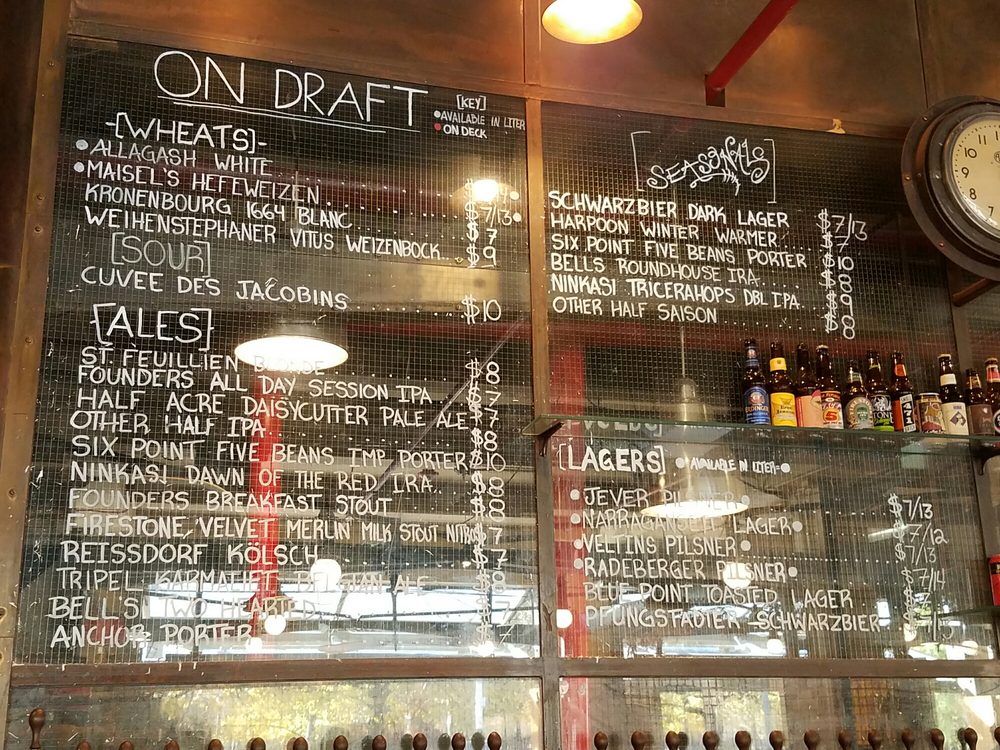 ON DRAFT
[KEY]
•AVAILABLE IN LITER
•ON DECK
-[WHEATS]-
•ALLAGASH WHITE
•MAISEL'S HEFEWEIZEN
KRONENBOURG 1664 BLANC $7/13
WEIHENSTEPHANER VITUS WEIZENBOCK.. $9
[SOUR]
CUVEE DES JACOBINS $10
{ALES}
ST. FEUILLIEN BLONDE $8
FOUNDERS ALL DAY SESSION IPA
HALF ACRE DAISYCUTTER PALE ALE $7
OTHER HALF IPA $8
SIX POINT FIVE BEANS IMP PORTER $10
NINKASI DAWN OF THE RED IRA..
FOUNDERS BREAKFAST STOUT
FIRESTONE/VELVET MERLIN MILK STOUT NITRO $7
REISSDORF KÖLSCH
TRIPEL KARMALIET BELGIAN ALE
BELL'S TWO HEARTED
ANCHOR PORTER
[SEASONALS]
SCHWARZBIER DARK LAGER $7/13
HARPOON WINTER WARMER
SIX POINT FIVE BEANS PORTER $10
BELLS ROUNDHOUSE IRA
NINKASI TRICERAHOPS DBL IPA
OTHER HALF SAISON $8
[LAGERS] •AVAILABLE IN LITER=•
•JEVER PILSNER• $7/13
•NARRAGANSETT LAGER• $7/12
•VELTINS PILSNER• $7/13
•RADEBERGER PILSNER• $7/14
BLUE POINT TOASTED LAGER
PFUNGSTADTER SCHWARZBIER
10
9
8